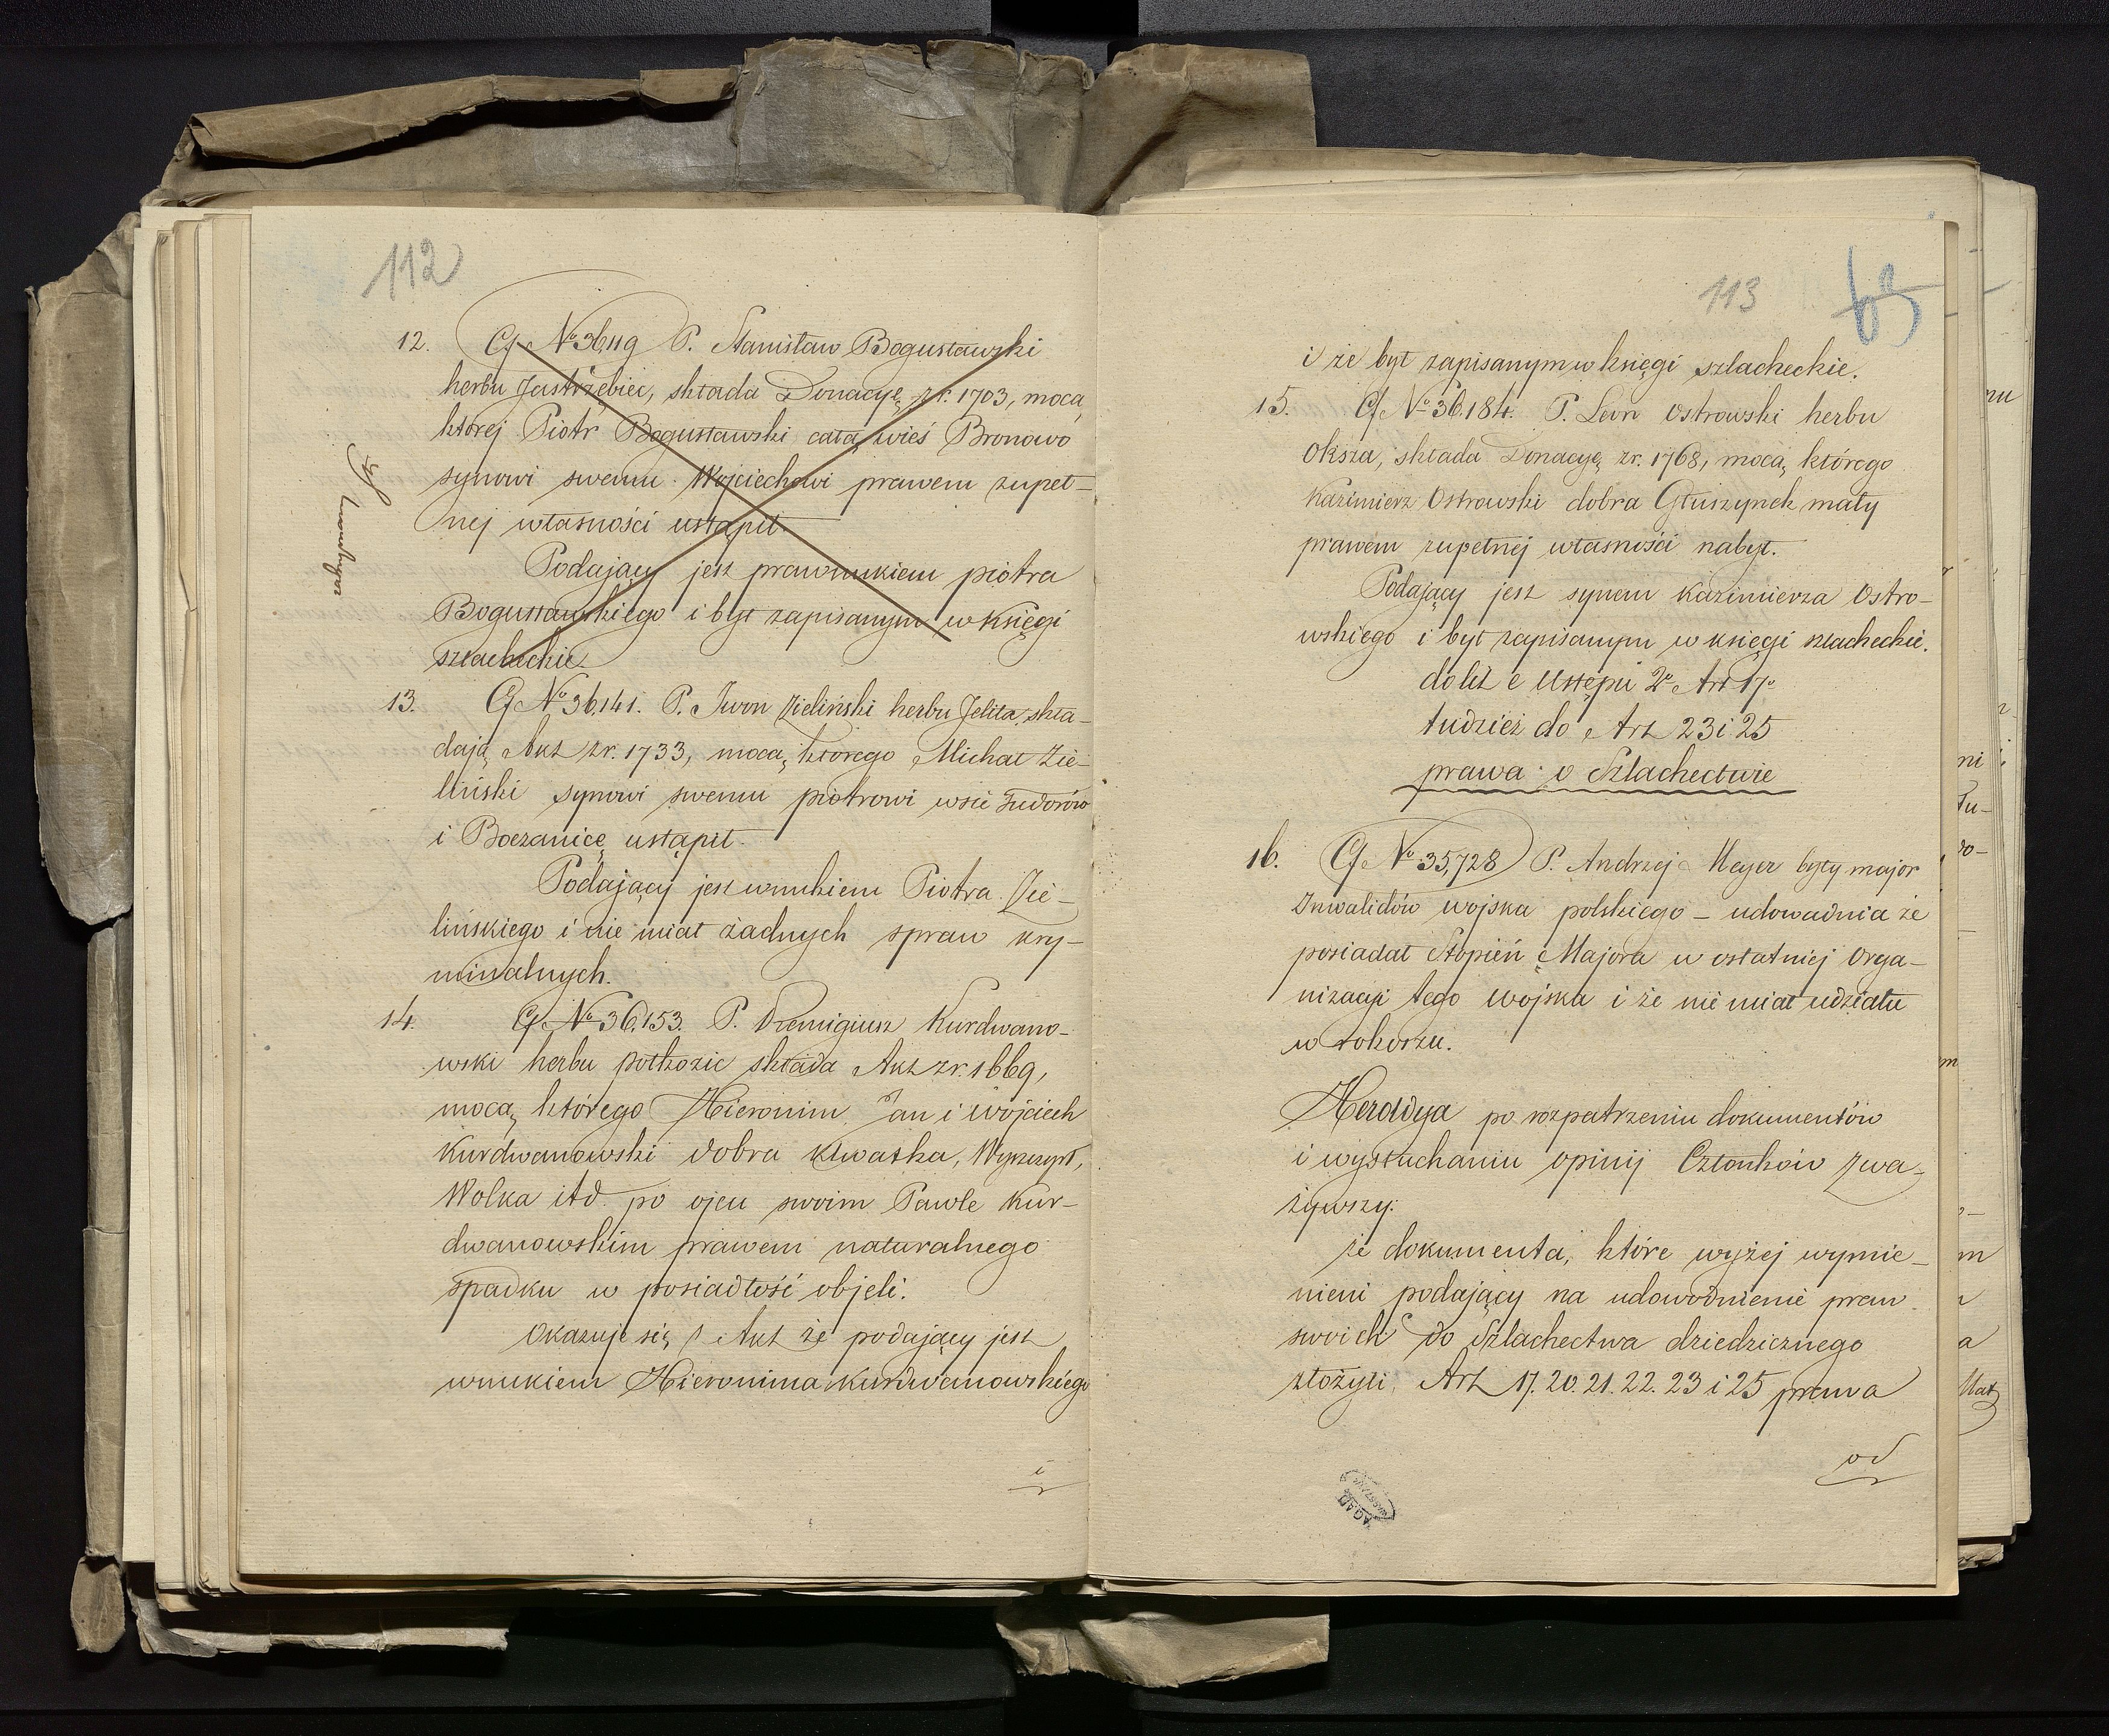 112
12. G. No 36,119 P. Stanisław Bogusławski
herbu Jastrzębiec, składa Donacyę z r. 1703, mocą
której Piotr Bogusławski całą wieś Bronowo
synowi swemu Wojciechowi prawem zupeł-
nej własności ustąpił.
Podający jest prawnukiem piotra
Bogusławskiego i był zapisanym w Księgi
szlacheckie.
13. G. No 36,141. P. Iwon Zieliński herbu Jelita, skła-
dają Akt z r. 1733, mocą którego Michał Zie-
liński synowi swemu piotrowi wsie Fudorów
i Boczanicę ustąpił.
Podający jest wnukiem Piotra Zie-
lińskiego i nie miał żadnych spraw kry-
minalnych.
14. G. No 36,153. P. Remigiusz Kurdwano-
wski herbu połkozic składa Akt z r. 1669,
mocą którego Hieronim, Jan i wojciech
Kurdwanowski dobra Kwaska, Wyszczyt,
Wolka itd. po ojcu swoim Pawle Kur-
dwanowskim prawem naturalnego
spadku w posiadłość objeli.
Okazuje się z Akt że podający jest
wnukiem Hieronima Kurdwanowskiego
i
113
i że był zapisanym w księgi szlacheckie.
15. G. No 36,184. P. Leon Ostrowski herbu
Oksza, składa Donacyę z r. 1768, mocą którego
Kazimierz Ostrowski dobra Głuszynek mały
prawem zupełnej własności nabył.
Podający jest synem Kazimierza Ostro-
wskiego i był zapisanym w księgi szlacheckie.
do lit e Ustępu 2o Art 17o
tudzież do Art 23 i 25
prawa o Szlachectwie
16. G. No 35,728 P. Andrzej Meyer były major
Inwalidów wojska polskiego – udowadnia że
posiadał Stopień Majora w ostatniej Orga-
nizacyi tego wojska i że nie miał udziału
w rokoszu.
Heroldya po rozpatrzeniu dokumentów
i wysłuchaniu opinij Członków zwa-
żywszy:
że dokumenta, które wyżej wymie-
nieni podający na udowodnienie praw
swoich do Szlachectwa dziedzicznego
złożyli, Art 17. 20. 21. 22. 23 i 25 prawa
od